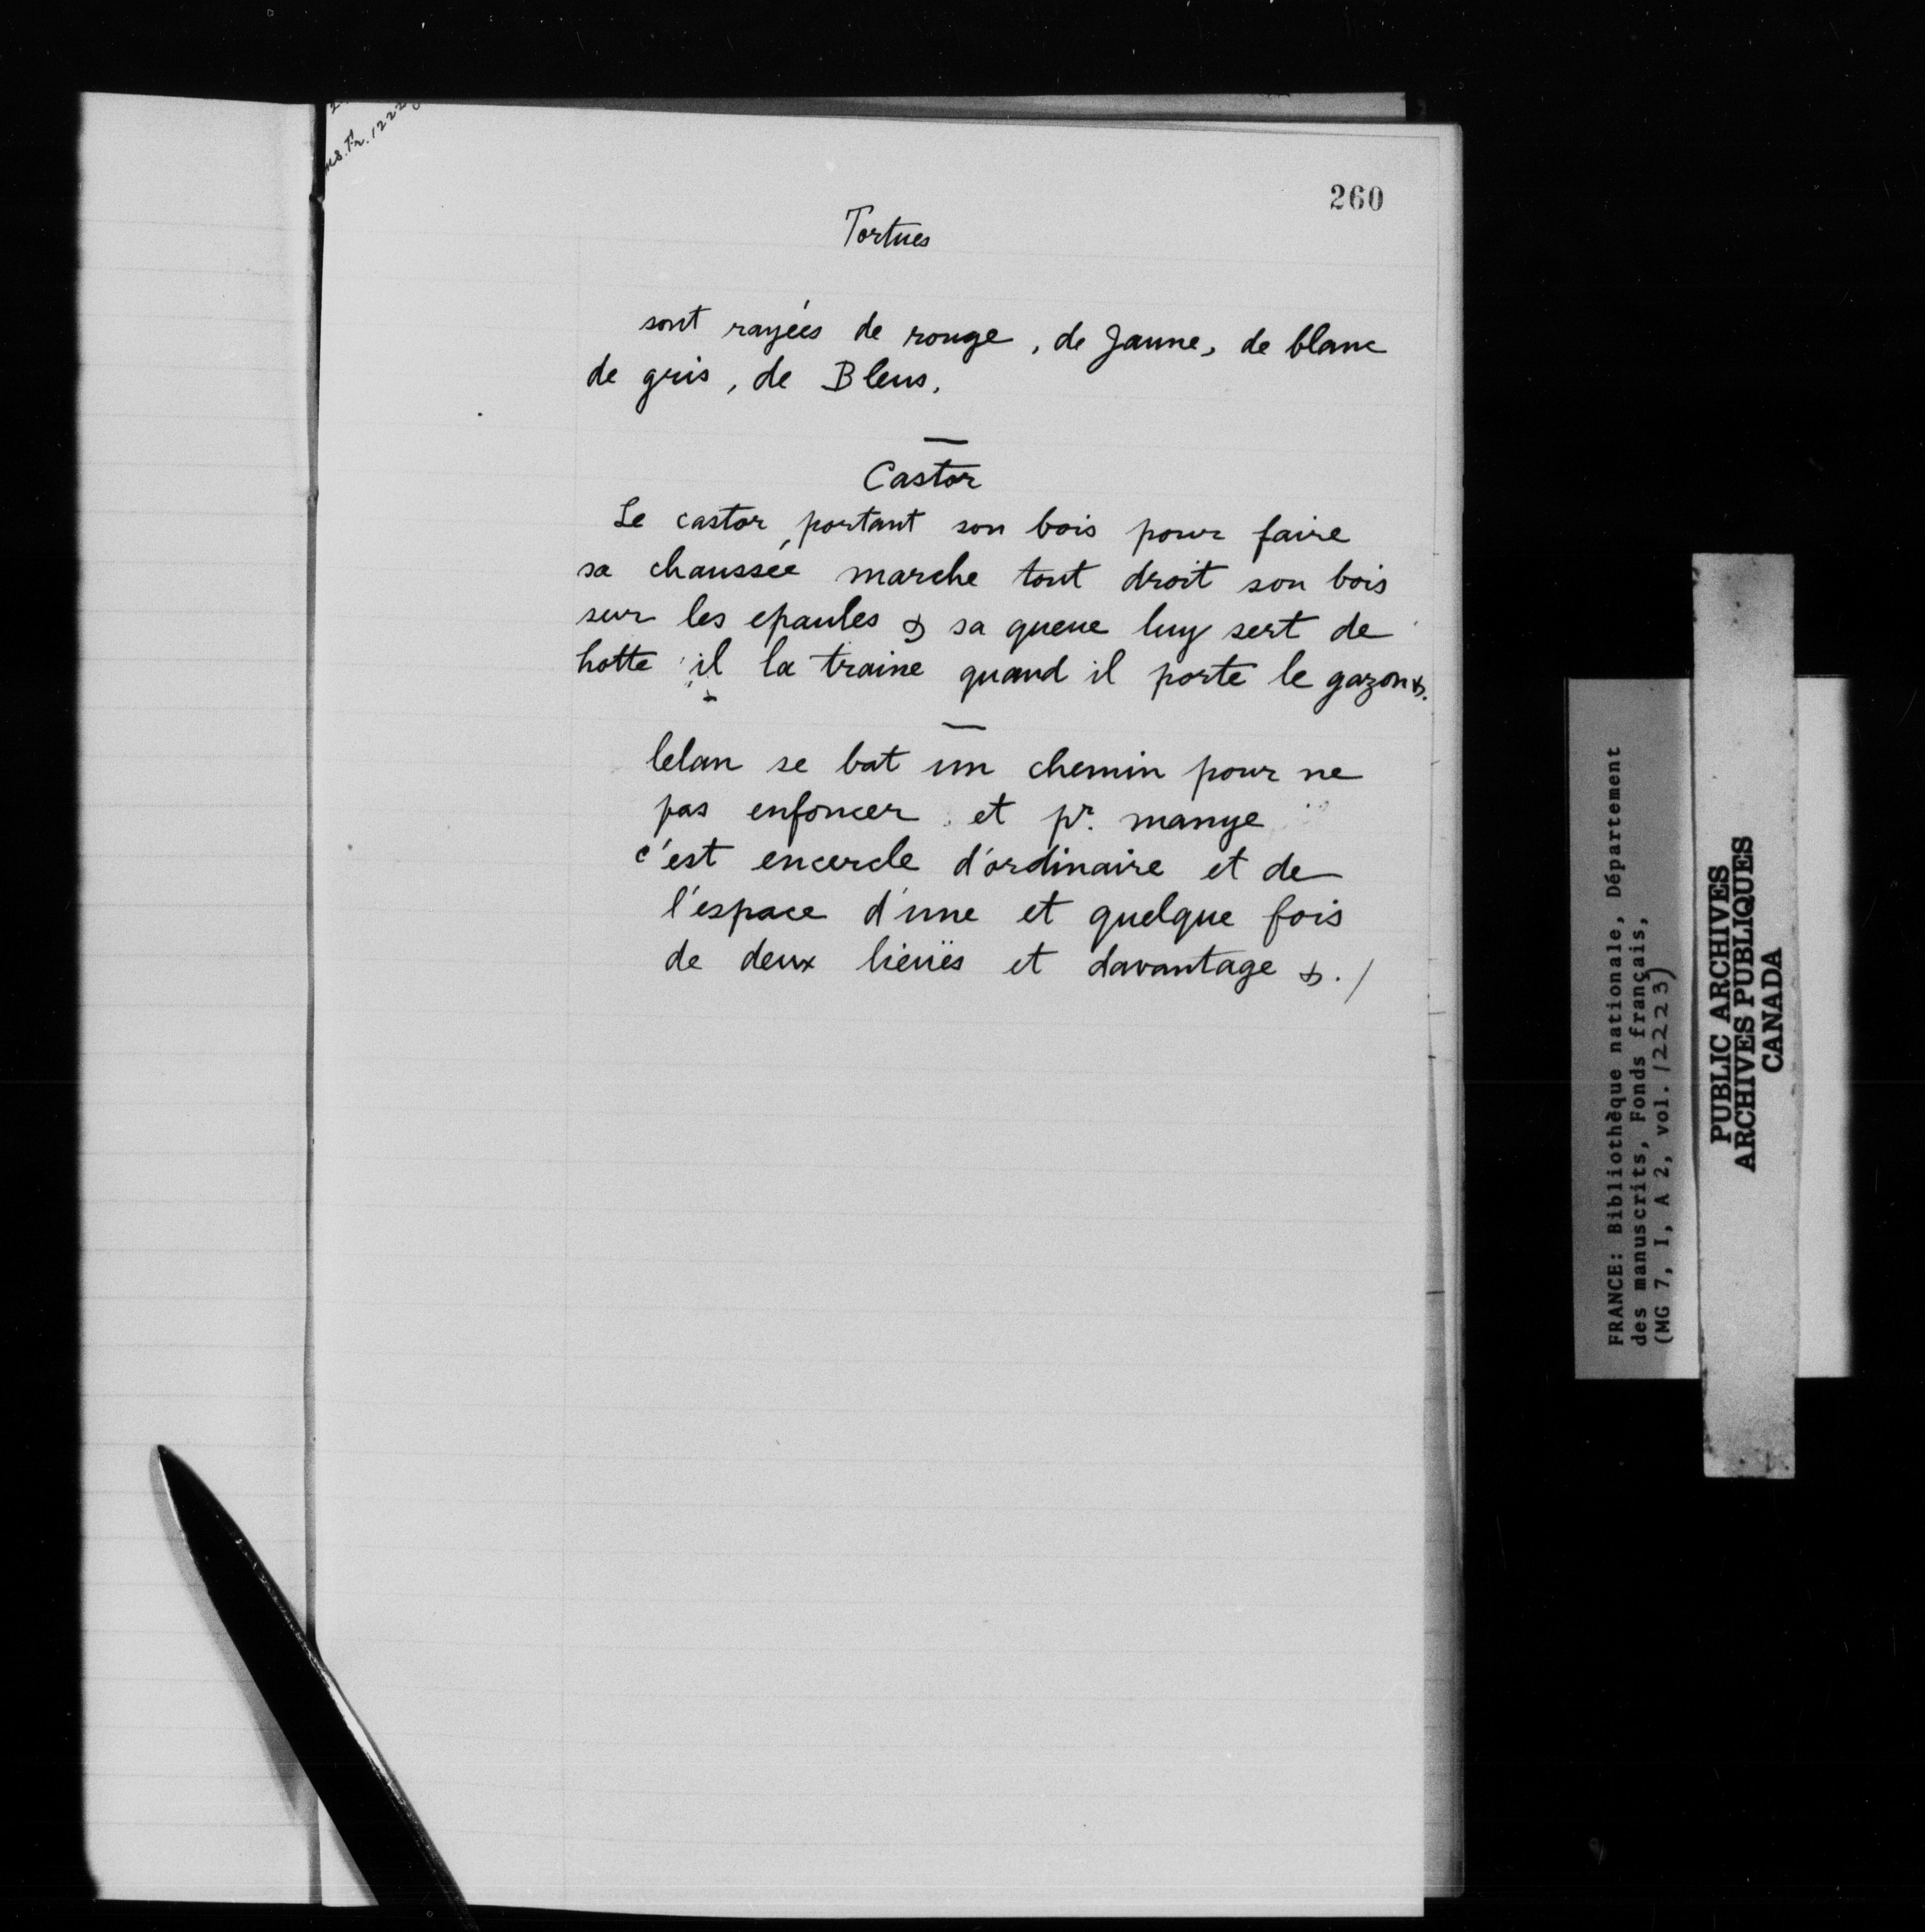 Ms. Fr. 1222
260
Tortues
sont rayées de rouge, de Jaune, de blanc
de gris, de Bleus.
Castor
Le castor, portant son bois pour faire
sa chaussée marche tout droit son bois
sur les epaules & sa queue luy sert de
hotte il la traine quand il porte le gazon &.
lelan se bat un chemin pour ne
pas enfoncer et pr. mange
c'est encercle d'ordinaire et de
l'espace d'une et quelque fois
de deux lieuës et davantage &./
FRANCE: Bibliothèque nationale, Département
des manuscrits, Fonds français,
(MG 7, I, A 2, vol. 12223)
PUBLIC ARCHIVES
ARCHIVES PUBLIQUES
CANADA